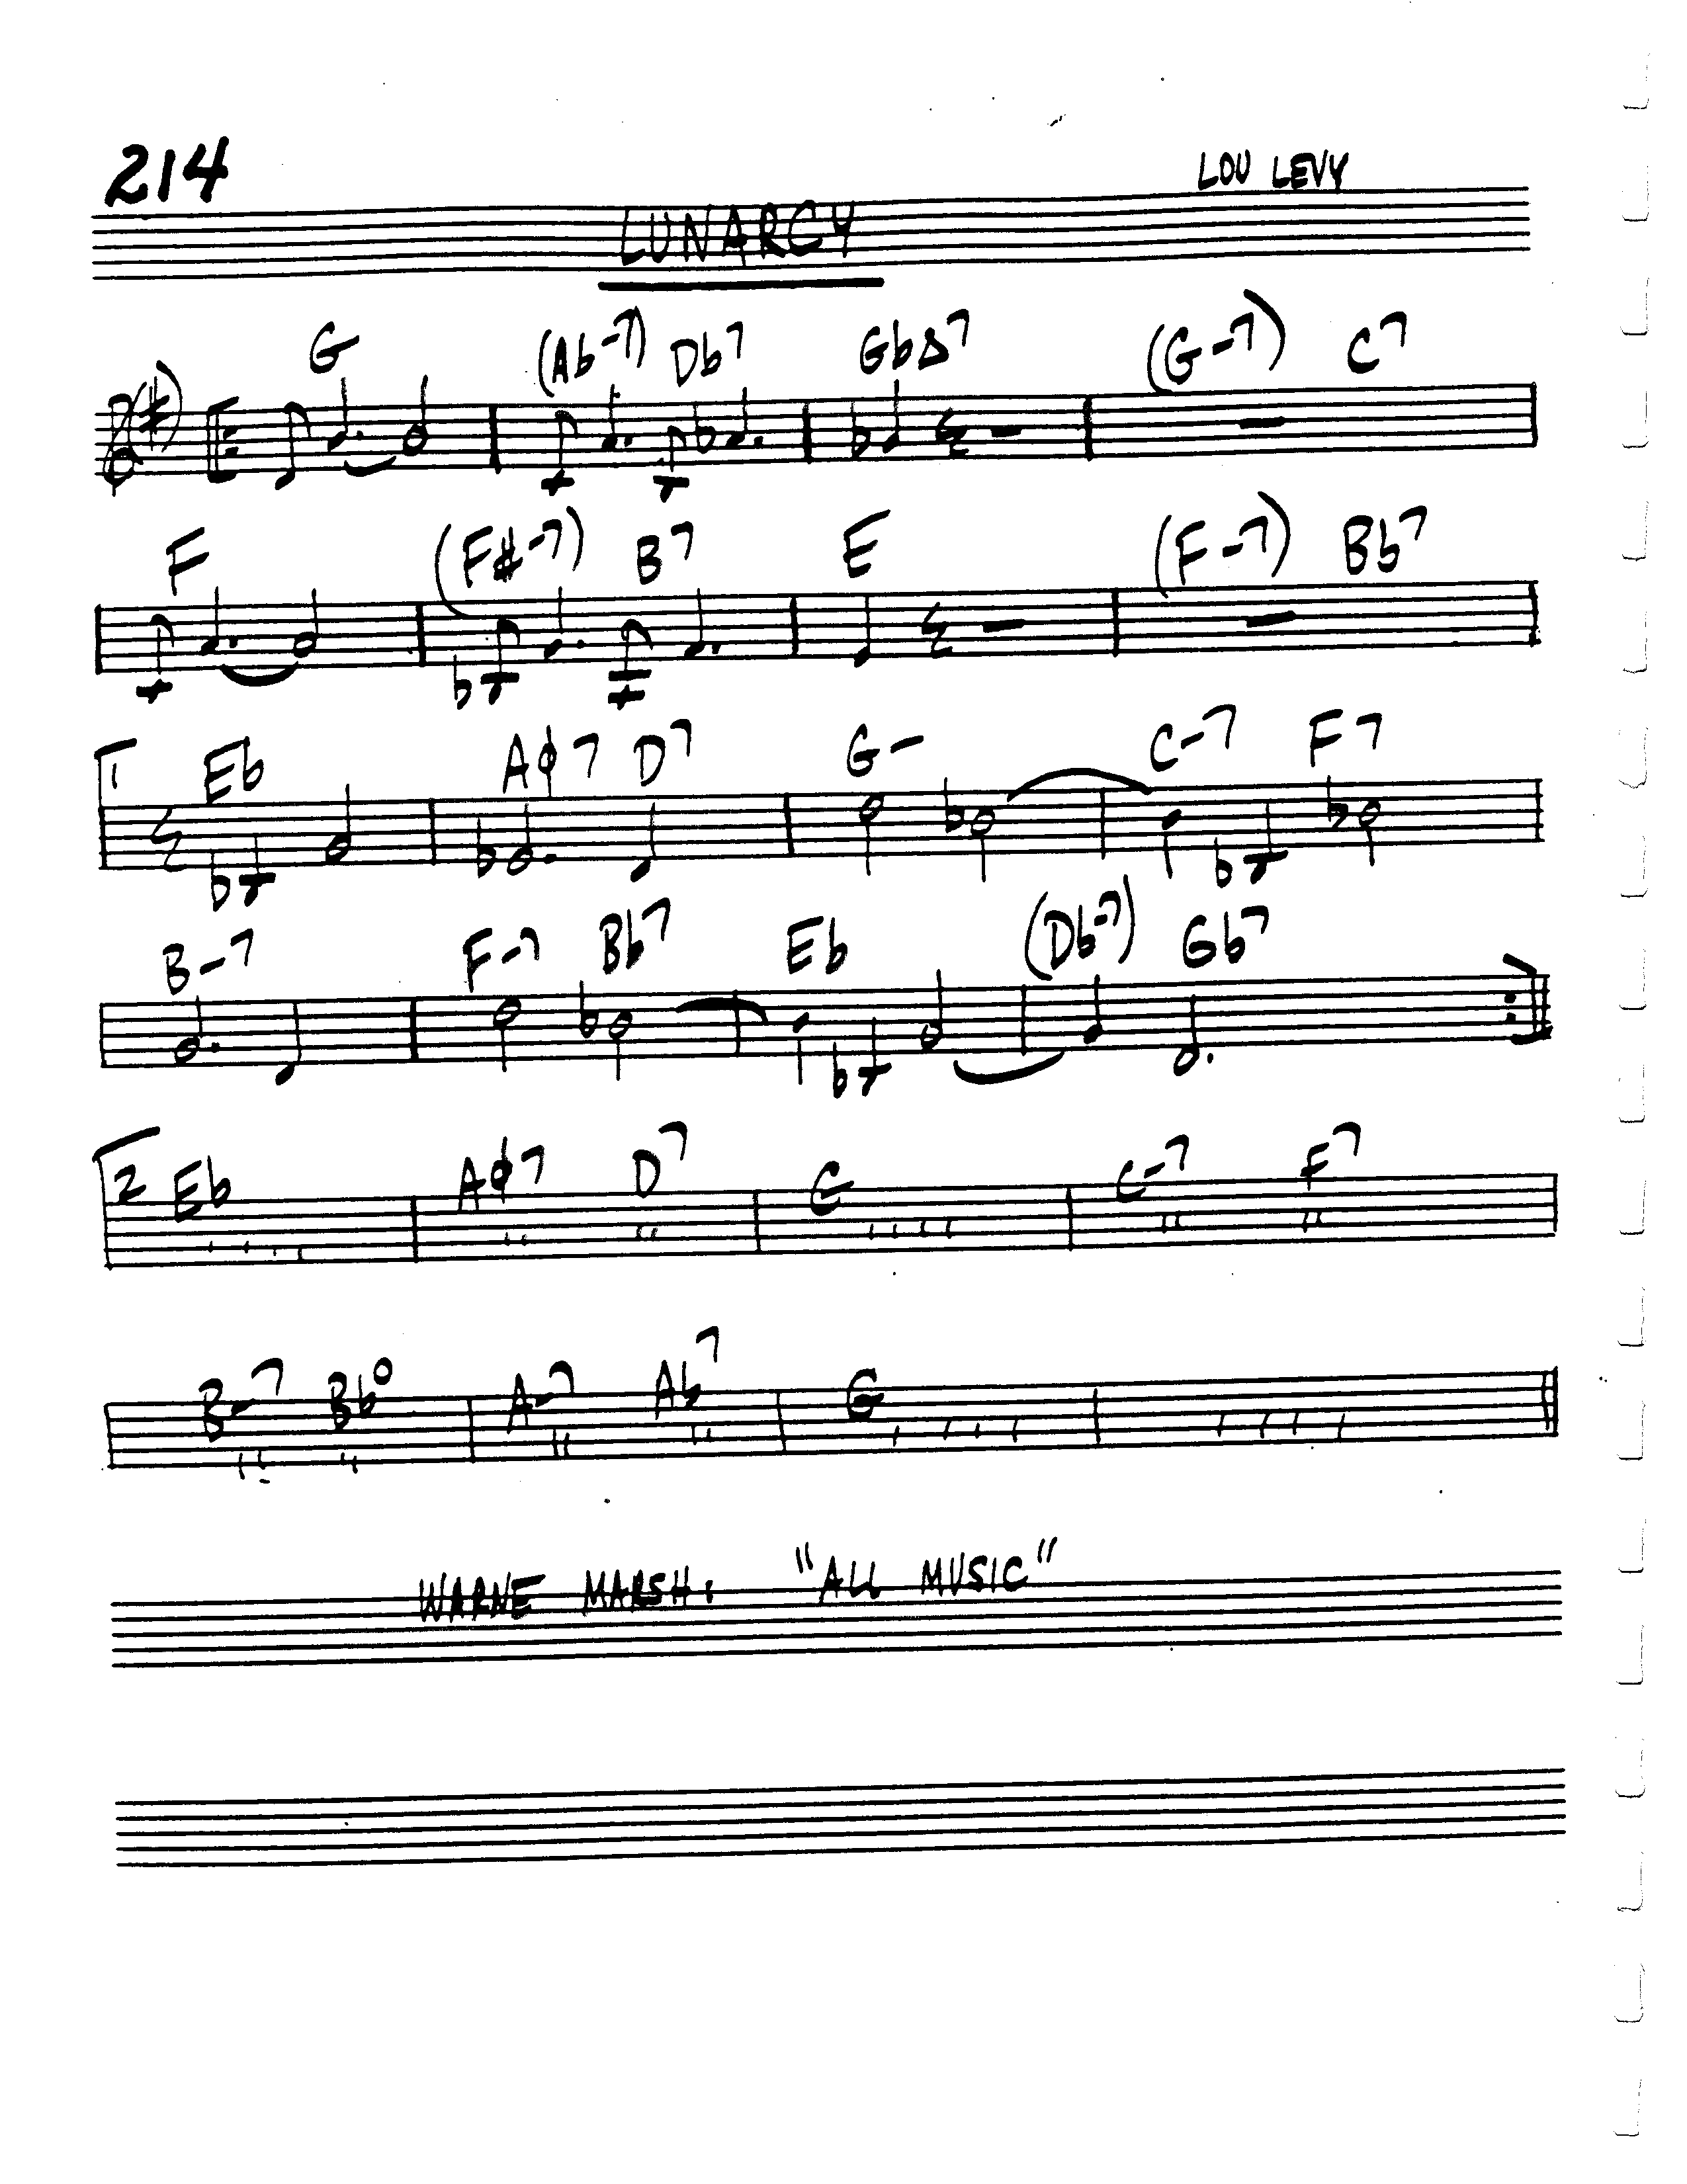 214
LOU LEVY
LUNARCY
G (Ab-7) Db7 GbΔ7 (G-7) C7
F (F#-7) B7 E (F-7) Bb7
1 Eb Aø7 D7 G- C-7 F7
B-7 F-7 Bb7 Eb (Db-7) Gb7
2 Eb Aø7 D7 G C-7 F7
B-7 Bb° A-7 Ab7 G
WARNE MARSH. "ALL MUSIC"